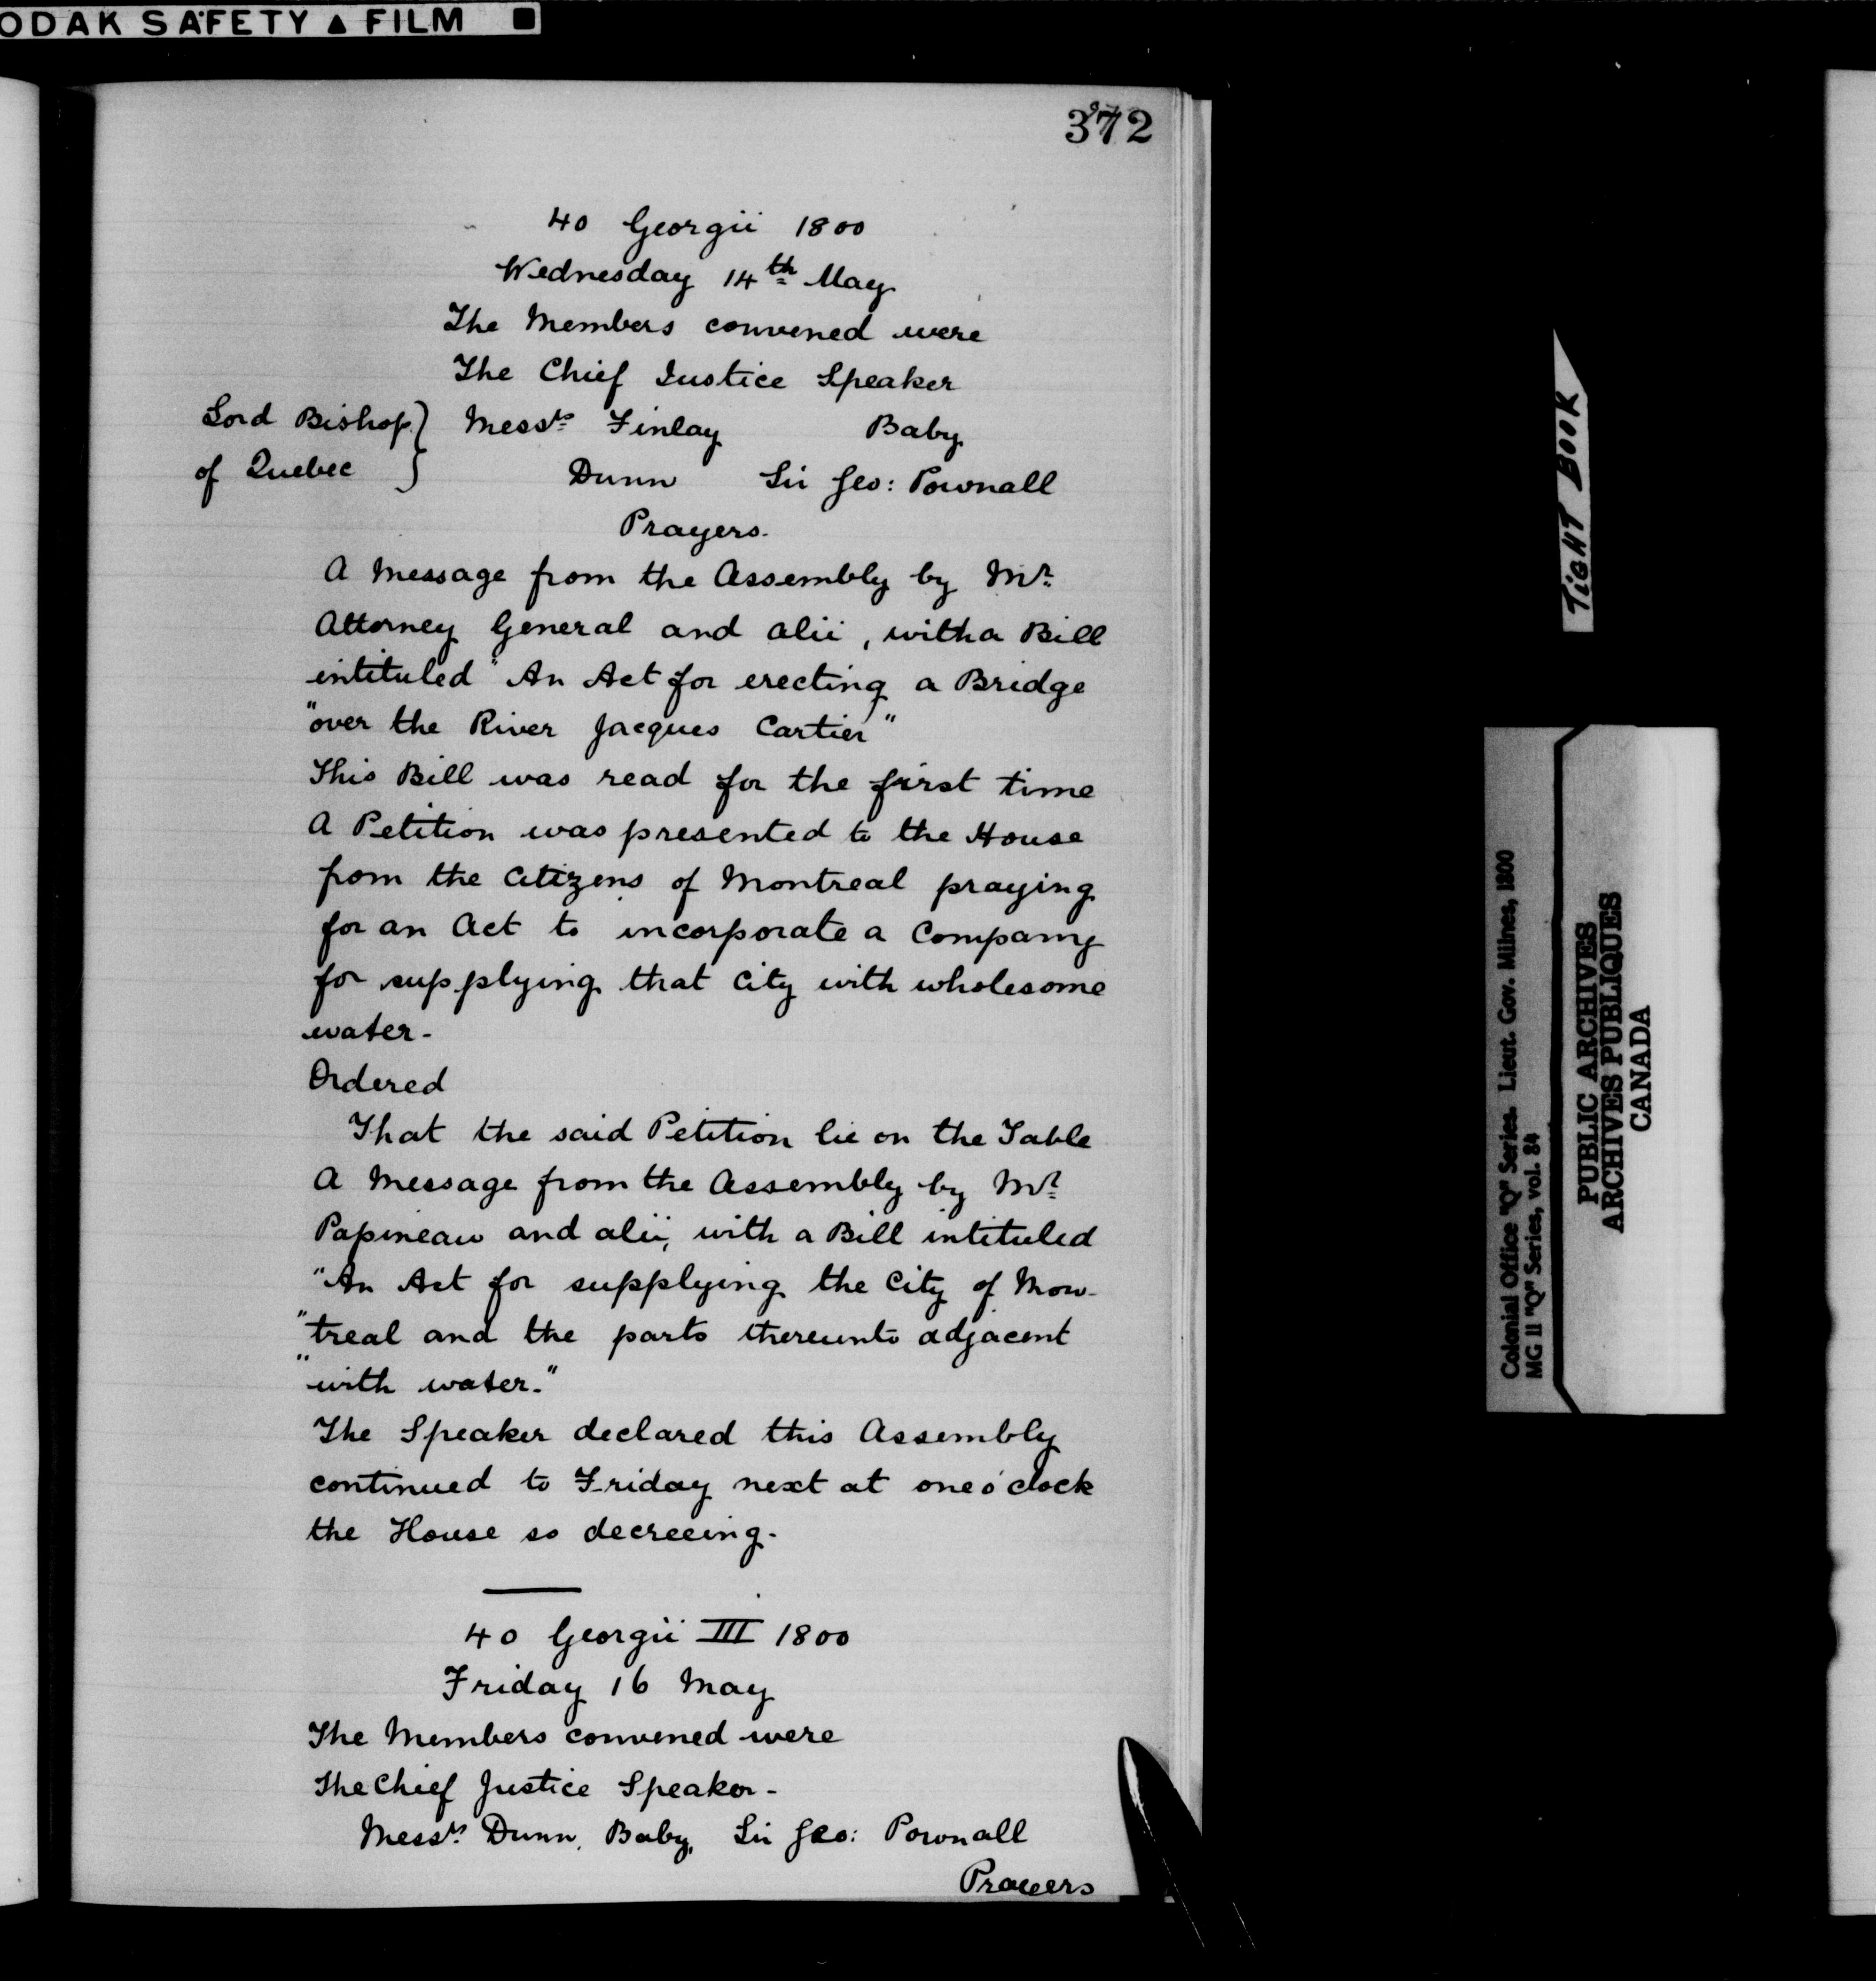 ODAK SAFETY ▲ FILM ■
372
40 Georgii 1800
Wednesday 14th May
The Members convened were
The Chief Justice Speaker
Lord Bishop } Messrs Finlay Baby
of Quebec } Dunn Sir Geo: Pownall
Prayers.
A Message from the Assembly by Mr
Attorney General and alii, with a Bill
intituled "An Act for erecting a Bridge
"over the River Jacques Cartier"
This Bill was read for the first time
A Petition was presented to the House
from the Citizens of Montreal praying
for an Act to incorporate a Company
for supplying that City with wholesome
water-
Ordered
That the said Petition lie on the Table
A Message from the Assembly by Mr
Papineau and alii, with a Bill intituled
"An Act for supplying the City of Mon-
"treal and the parts thereunto adjacent
"with water."
The Speaker declared this Assembly
continued to Friday next at one o'clock
the House so decreeing.
40 Georgii III 1800
Friday 16 May
The Members convened were
The Chief Justice Speaker-
Messrs Dunn, Baby, Sir Geo: Pownall
Prayers
TiGHT BOOK
Colonial Office "Q" Series. Lieut. Gov. Milnes, 1800
MG 11 "Q" Series, vol. 84
PUBLIC ARCHIVES
ARCHIVES PUBLIQUES
CANADA